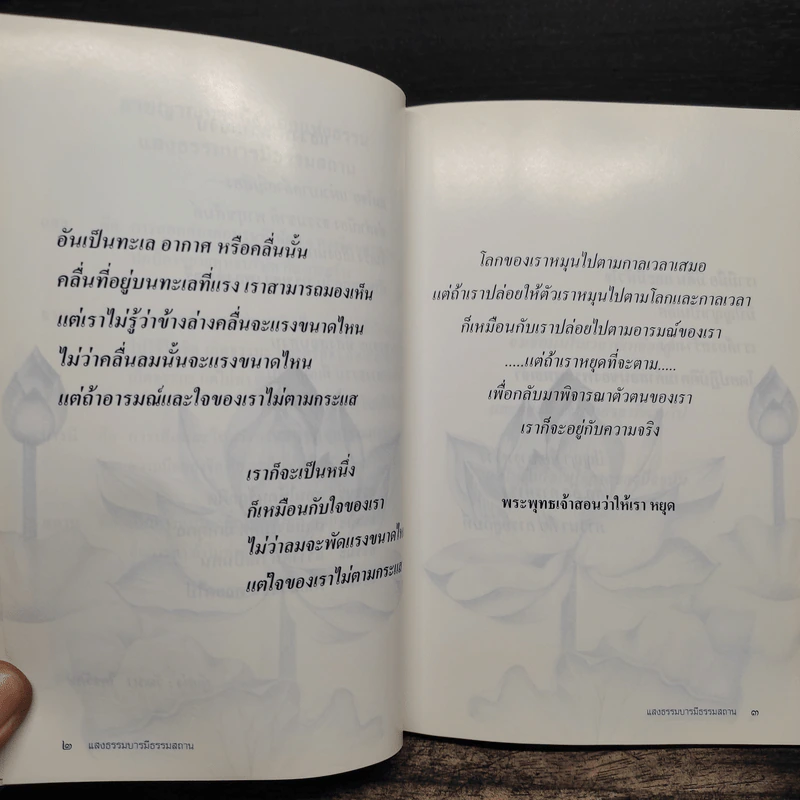 อันเป็นทะเล อากาศ หรือคลื่นนั้น
คลื่นที่อยู่บนทะเลที่แรง เราสามารถมองเห็น
แต่เราไม่รู้ว่าข้างล่างคลื่นจะแรงขนาดไหน
ไม่ว่าคลื่นลมนั้นจะแรงขนาดไหน
แต่ถ้าอารมณ์และใจของเราไม่ตามกระแส
เราก็จะเป็นหนึ่ง
ก็เหมือนกับใจของเรา
ไม่ว่าลมจะพัดแรงขนาดไห
แต่ใจของเราไม่ตามกระแส
๒ แสงธรรมบารมีธรรมสถาน
โลกของเราหมุนไปตามกาลเวลาเสมอ
แต่ถ้าเราปล่อยให้ตัวเราหมุนไปตามโลกและกาลเวลา
ก็เหมือนกับเราปล่อยไปตามอารมณ์ของเรา
.....แต่ถ้าเราหยุดที่จะตาม.....
เพื่อกลับมาพิจารณาตัวตนของเรา
เราก็จะอยู่กับความจริง
พระพุทธเจ้าสอนว่าให้เรา หยุด
แสงธรรมบารมีธรรมสถาน ๓